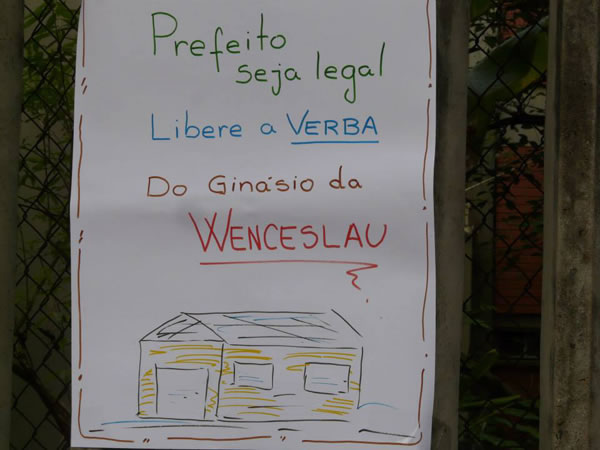 Prefeito
seja legal
Libere a VERBA
Do Ginásio da
WENCESLAU